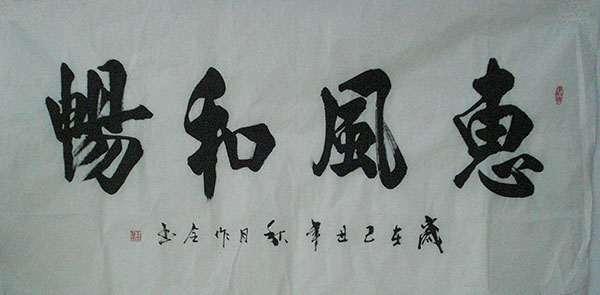 惠風和暢
歲在己丑年秋月作全书